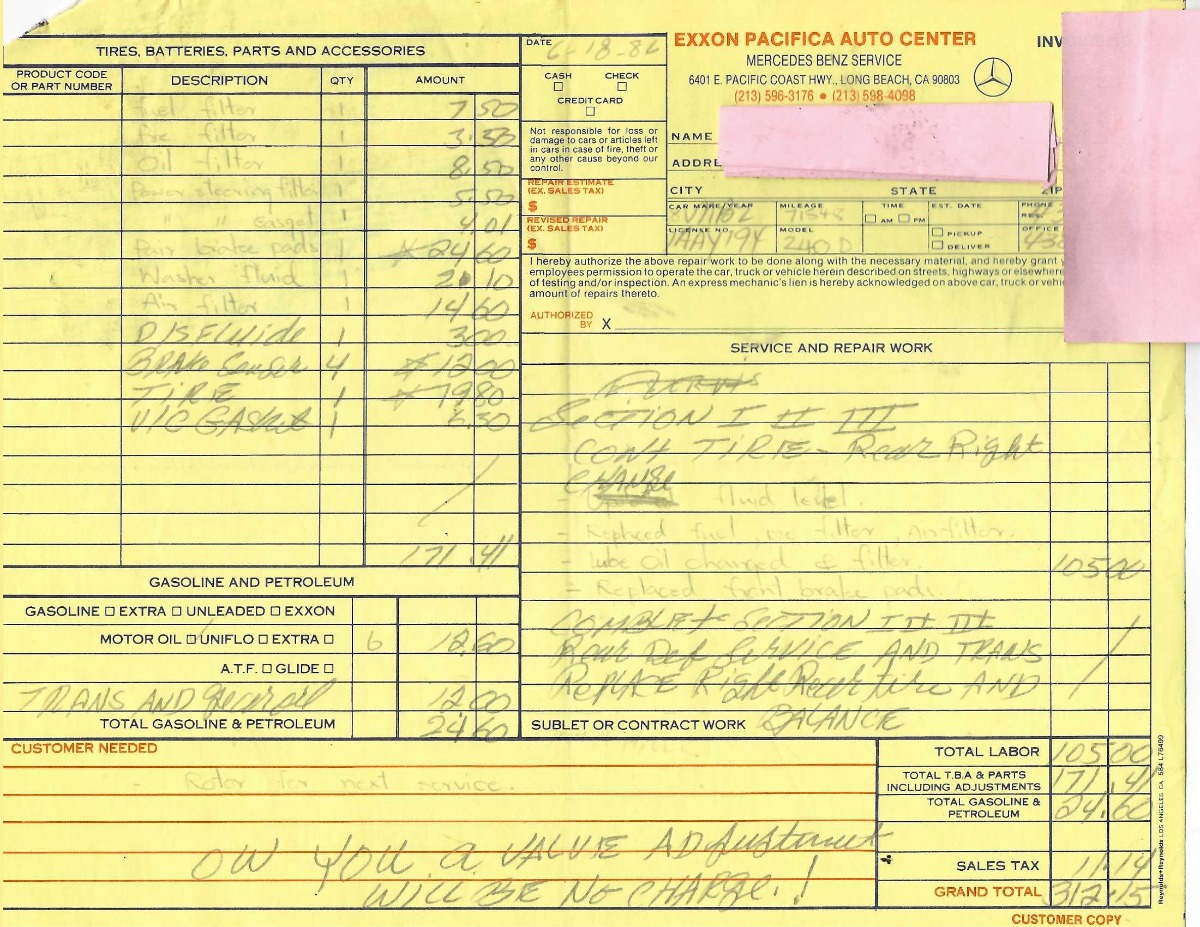 TIRES, BATTERIES, PARTS AND ACCESSORIES
PRODUCT CODE OR PART NUMBER DESCRIPTION QTY AMOUNT
fuel filter 1 7.50
Pre filter 1 3.50
Oil filter 1 8.50
Power steering filter 1 5.50
" " Gasget 1 4.01
brake pads 1 24 60
Washer fluid 10
Air filter 1 14 60
DISFLUIDE 1 300
BRAKE 4 1200
TIRE 1 1980
V/C GASket 1 6.30
171.41
GASOLINE AND PETROLEUM
GASOLINE EXTRA UNLEADED EXXON
MOTOR OIL UNIFLO EXTRA 6 12.60
A.T.F. GLIDE
TRANS AND oil 12 00
TOTAL GASOLINE & PETROLEUM 24 60
DATE 6-18-86
CASH CHECK
CREDIT CARD
Not responsible for loss or
damage to cars or articles left
in cars in case of fire, theft or
any other cause beyond our
control.
REPAIR ESTIMATE
(EX. SALES TAX)
$
REVISED REPAIR
(EX. SALES TAX)
$
EXXON PACIFICA AUTO CENTER INV
MERCEDES BENZ SERVICE
6401 E. PACIFIC COAST HWY., LONG BEACH, CA 90803
(213) 596-3176 • (213) 598-4098
NAME
ADDRE
CITY STATE ZIP
CAR MAKE/YEAR MILEAGE TIME EST. DATE PHONE
71548 AM PM RES.
LICENSE NO. MODEL PICKUP OFFICE
1AAY194 240 D DELIVER
I hereby authorize the above repair work to be done along with the necessary material, and hereby grant y
employees permission to operate the car, truck or vehicle herein described on streets, highways or elsewhere
of testing and/or inspection. An express mechanic's lien is hereby acknowledged on above car, truck or vehic
amount of repairs thereto.
AUTHORIZED
BY X
SERVICE AND REPAIR WORK
SECTION I II III
CONT TIRE - Rear Right
CHANGE
- fluid level.
- Replaced fuel, pre filter, Air filter.
- Lube Oil changed & filter 105 00
- Replaced front brake pads.
COMBLET SECTION I II III
Rear Def SERVICE AND TRANS
REPLACE Right Rear tire AND
SUBLET OR CONTRACT WORK BALANCE
CUSTOMER NEEDED
- Rotor for next service.
OW YOU a VALUE ADjustment
WILL BE NO CHARGE.!
TOTAL LABOR 105 00
TOTAL T.B.A & PARTS
INCLUDING ADJUSTMENTS 171.41
TOTAL GASOLINE &
PETROLEUM 24.60
SALES TAX 11.14
GRAND TOTAL 312.15
CUSTOMER COPY
Reynolds+Reynolds LOS ANGELES, CA 584 L78499